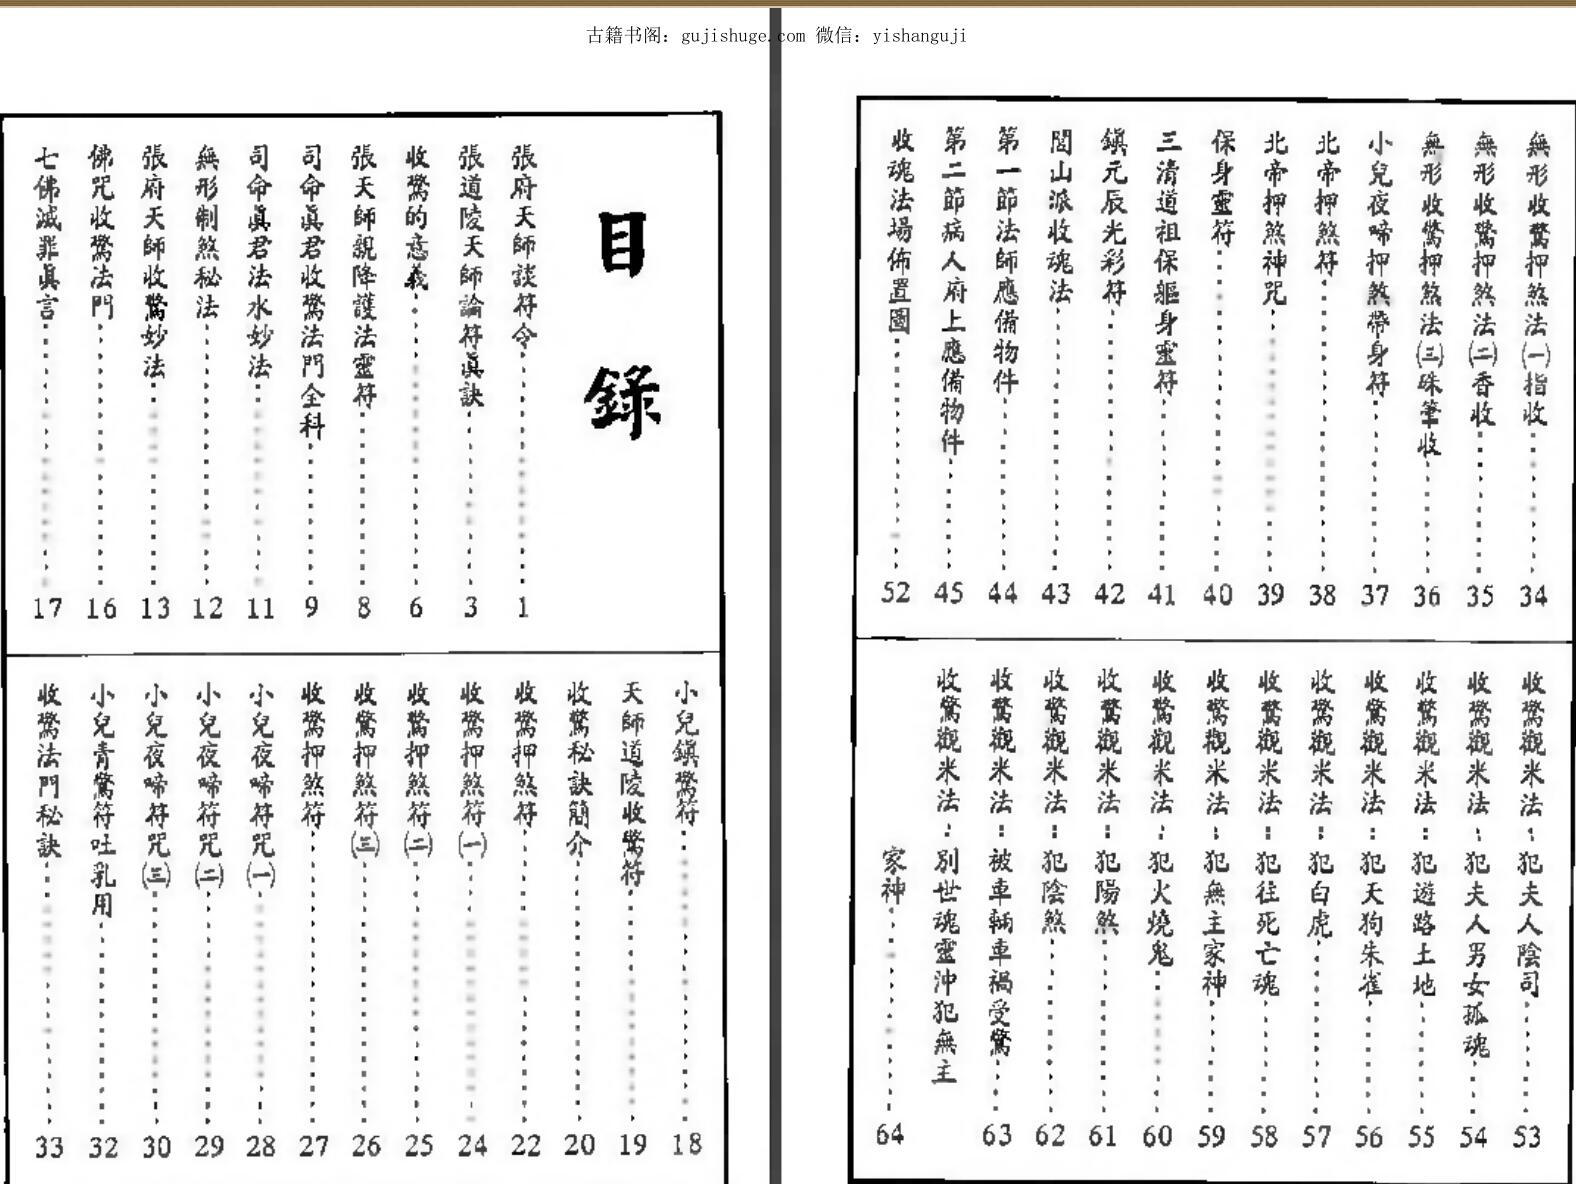 古籍书阁：gujishuge.com 微信：yishanguji
目錄
張府天師談符令 1
張道陵天師論符眞訣 3
收驚的意義 6
張天師親降護法靈符 8
司命眞君收驚法門全科 9
司命眞君法水妙法 11
無形制煞秘法 12
張府天師收驚妙法 13
佛咒收驚法門 16
七佛滅罪眞言 17
小兒鎮驚符 18
天師道陵收驚符 19
收驚秘訣簡介 20
收驚押煞符 22
收驚押煞符㈠ 24
收驚押煞符㈡ 25
收驚押煞符㈢ 26
收驚押煞符 27
小兒夜啼符咒㈠ 28
小兒夜啼符咒㈡ 29
小兒夜啼符咒㈢ 30
小兒青驚符吐乳用 32
收驚法門秘訣 33
無形收驚押煞法㈠指收 34
無形收驚押煞法㈡香收 35
無形收驚押煞法㈢硃筆收 36
小兒夜啼押煞帶身符 37
北帝押煞符 38
北帝押煞神咒 39
保身靈符 40
三清道祖保軀身靈符 41
鎮元辰光彩符 42
閭山派收魂法 43
第一節法師應備物件 44
第二節病人府上應備物件 45
收魂法場佈置圖 52
收驚觀米法：犯夫人陰司 53
收驚觀米法：犯夫人男女孤魂 54
收驚觀米法：犯遊路土地 55
收驚觀米法：犯天狗朱雀 56
收驚觀米法：犯白虎 57
收驚觀米法：犯往死亡魂 58
收驚觀米法：犯無主家神 59
收驚觀米法：犯火燒鬼 60
收驚觀米法：犯陽煞 61
收驚觀米法：犯陰煞 62
收驚觀米法：被車輛車禍受驚 63
收驚觀米法：別世魂靈沖犯無主
家神 64